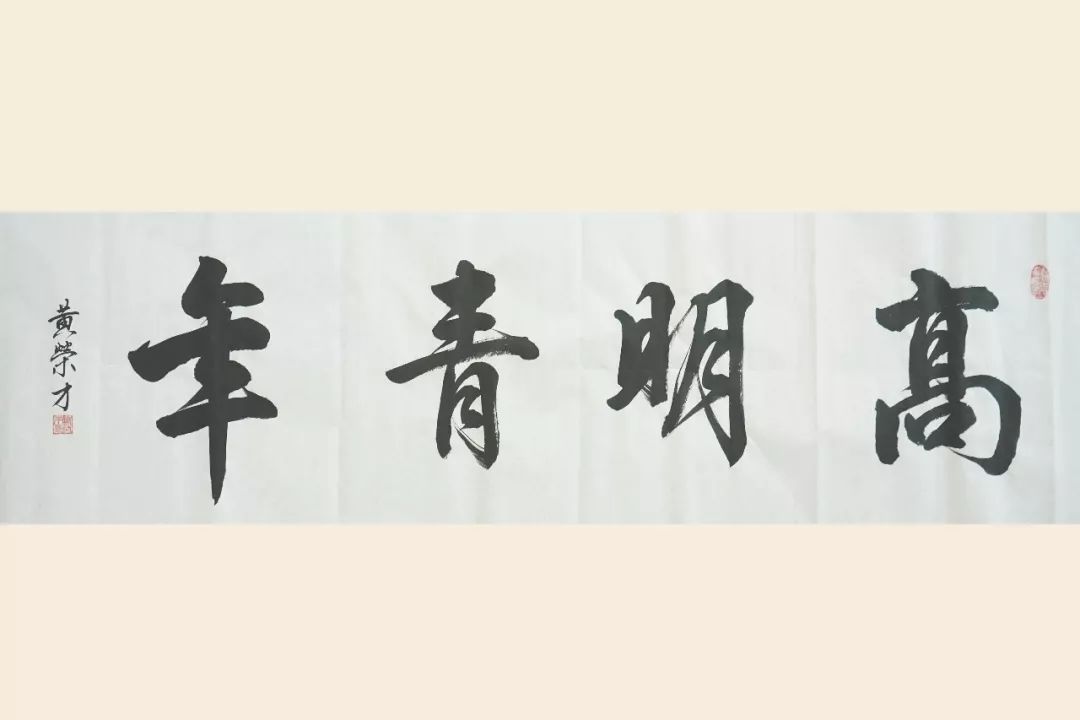 高明青年
黄榮才